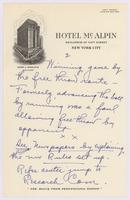 HOTEL McALPIN
BROADWAY AT 34TH STREET
NEW YORK CITY
2
Winning game by
the free throw route –
Formerly advancing the ball
by running was a foul
allowing free throw by
opponent
x x
See Newspapers by explaining
the new Rules set up.
Refer center jump to
Research Com.